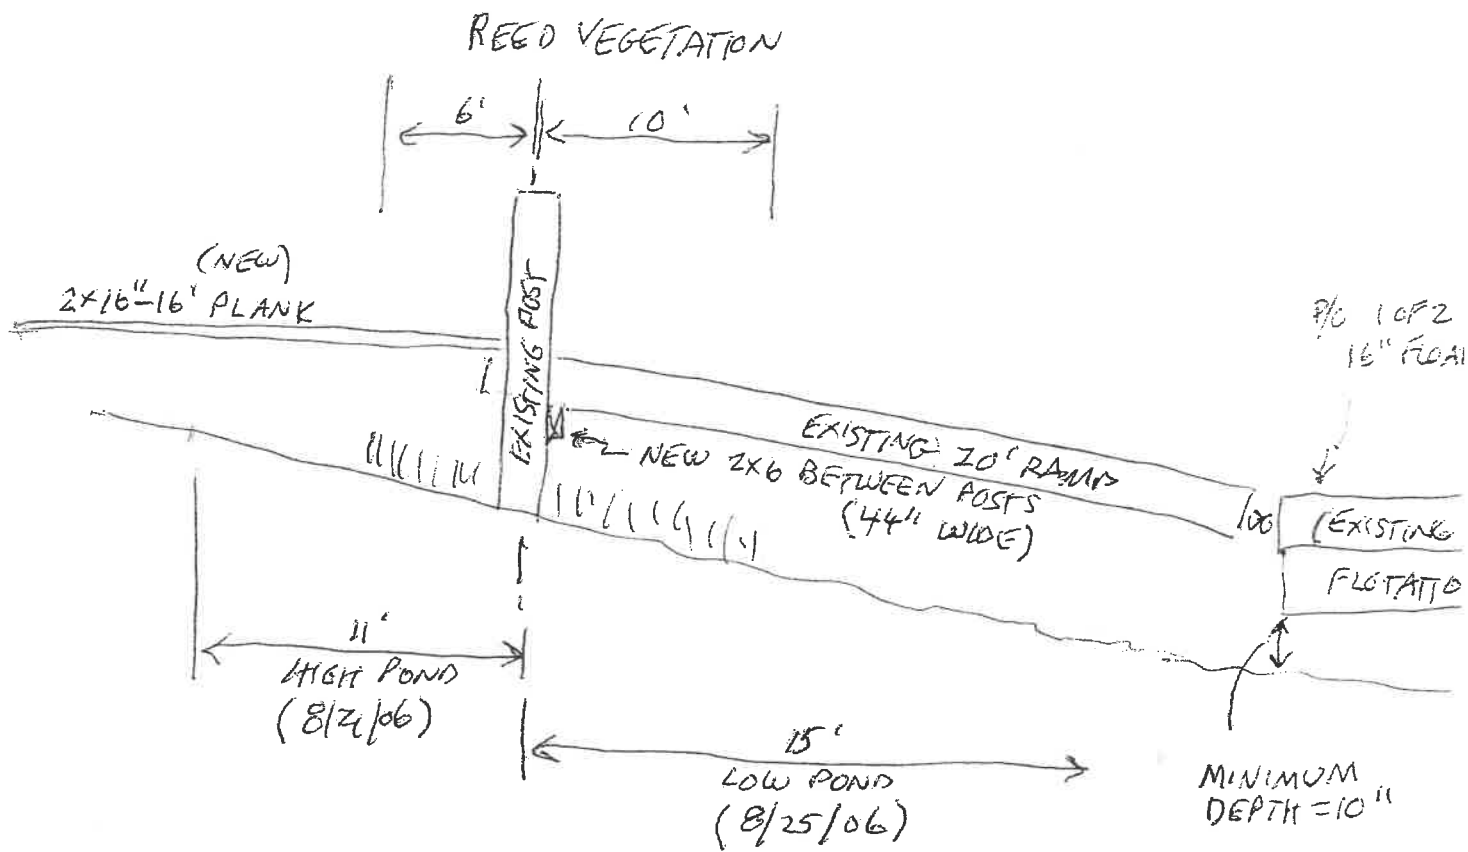 REED VEGETATION
6'
10'
(NEW)
2×16"-16' PLANK
EXISTING POST
P/O 1 OF 2
16" FLOA
EXISTING 20' RAMP
NEW 2X6 BETWEEN POSTS
(44" WIDE)
(EXISTING
FLOTATIO
11'
HIGH POND
15'
LOW POND
(8/25/06)
MINIMUM
DEPTH = 10"